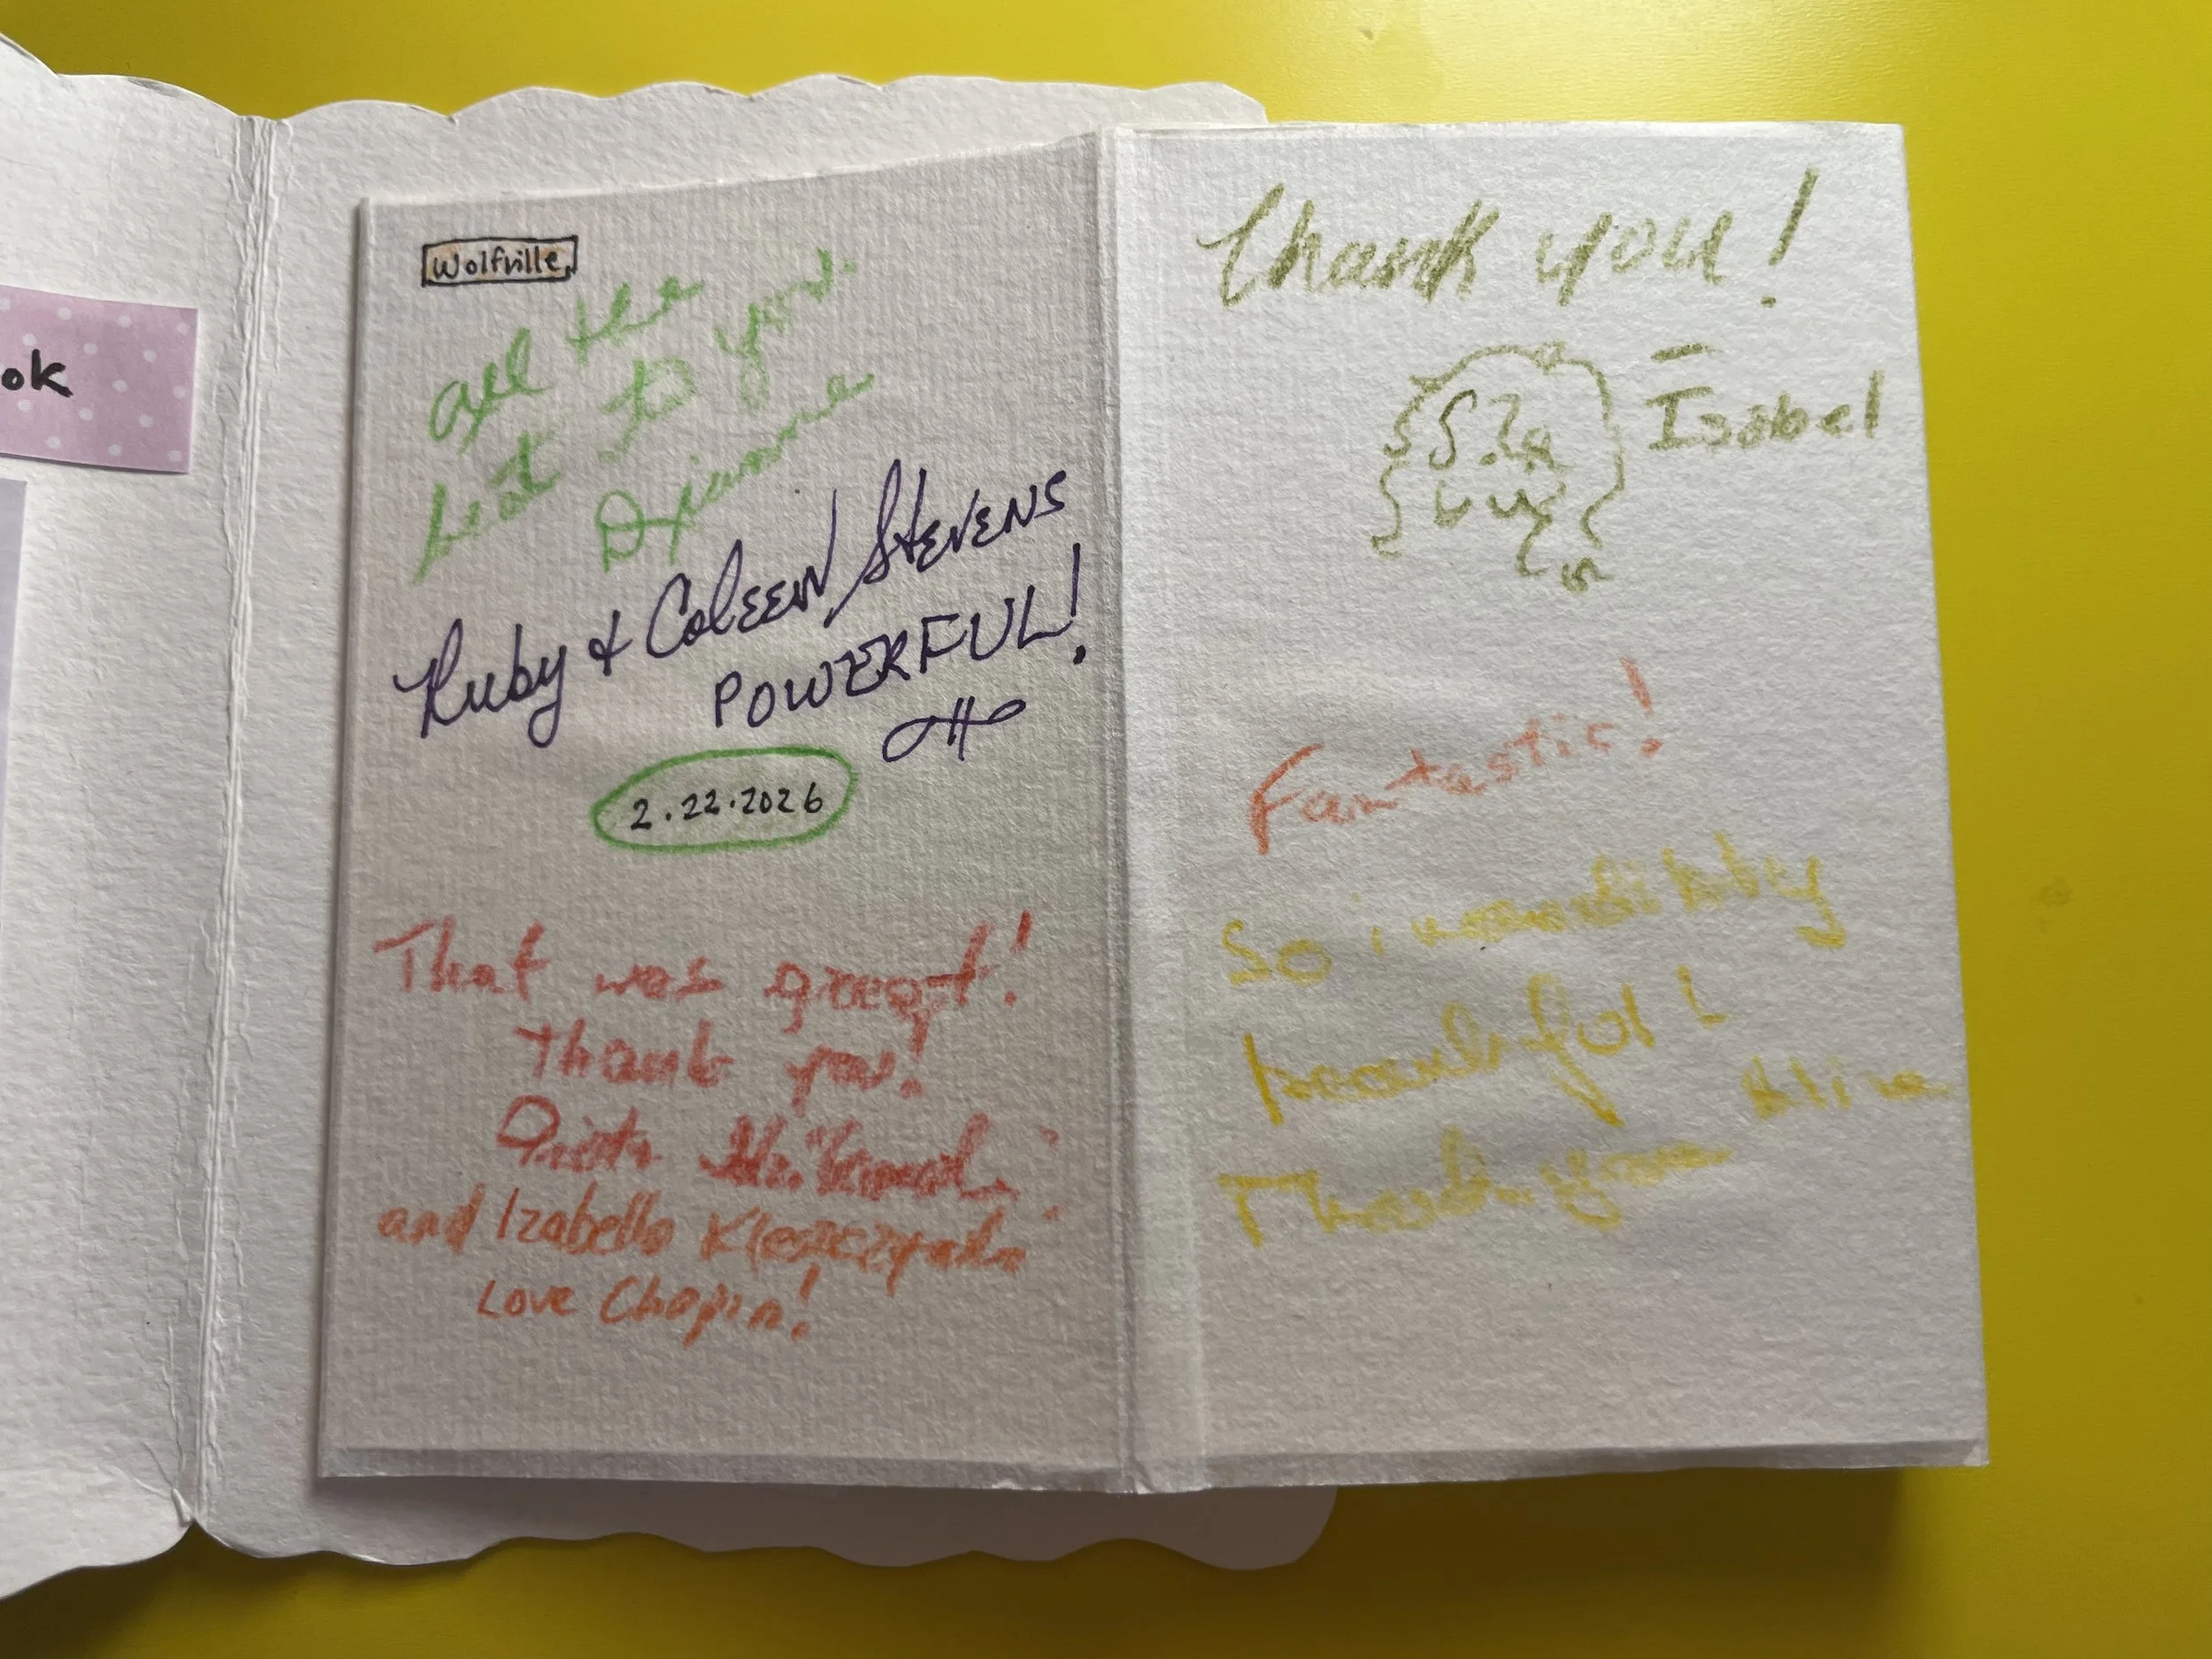 ok
Wolfville
all the
best to you.
Dianne
Ruby & Coleen Stevens
POWERFUL!
2.22.2026
That was great!
Thank you!
and Izabella
Love Chopin!
Thank you!
– Isabel
Fantastic!
So incredibly
beautiful!
Thank you